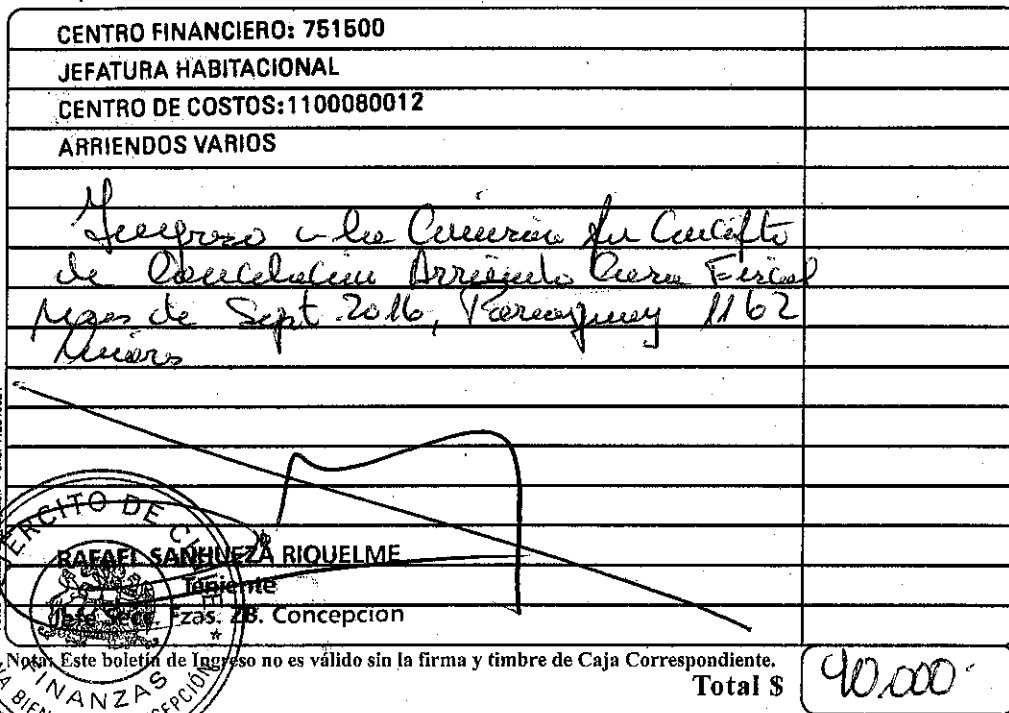 CENTRO FINANCIERO: 751500
JEFATURA HABITACIONAL
CENTRO DE COSTOS:1100080012
ARRIENDOS VARIOS
Ingreso a la Cuenta
de Cancelación Arriendo Casa Fiscal
Mes de Sept. 2016, Paraguay 1162
EJERCITO DE CHILE
RAFAEL SANHUEZA RIQUELME
Teniente
Jefe Secc. Fzas. ZB. Concepcion
Nota: Este boletín de Ingreso no es válido sin la firma y timbre de Caja Correspondiente.
FINANZAS
Total $ 90.000